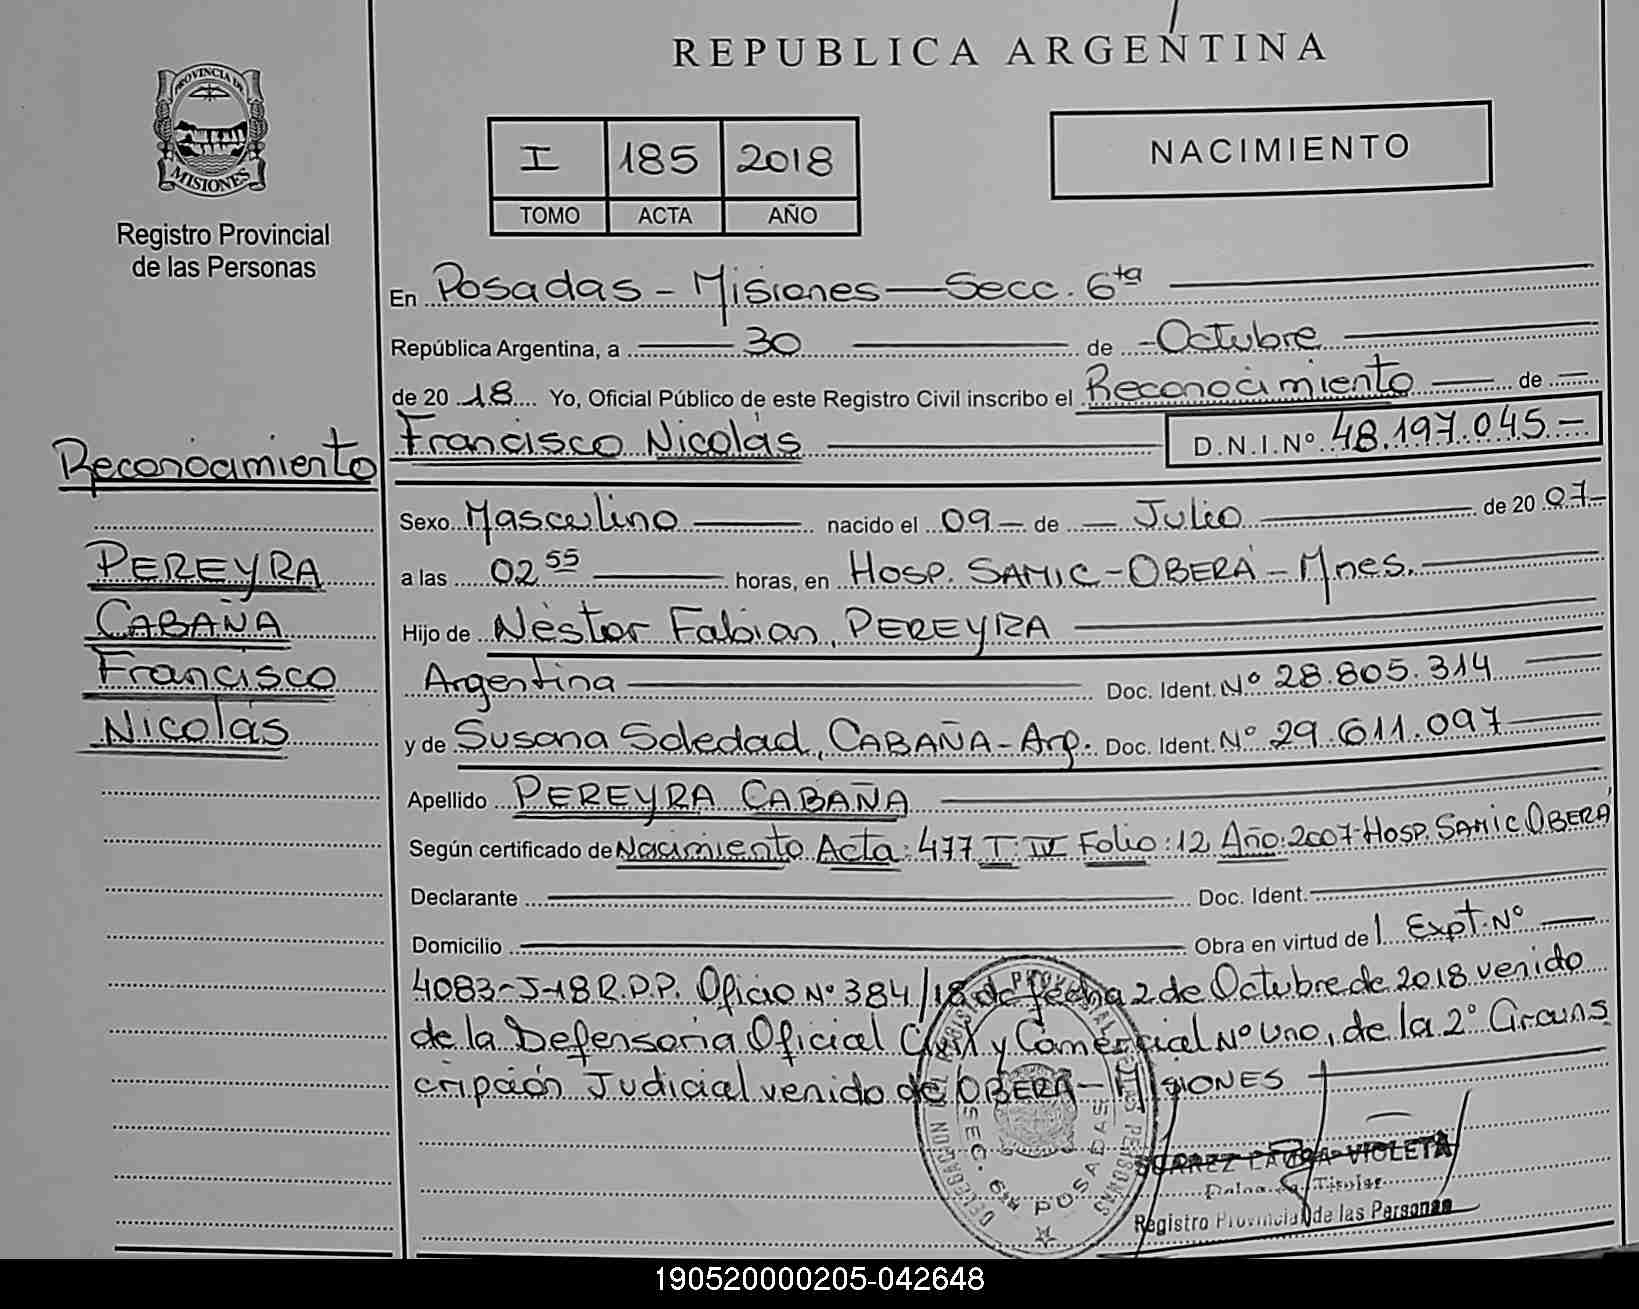 REPUBLICA ARGENTINA
PROVINCIA DE
MISIONES
Registro Provincial
de las Personas
I 185 2018
TOMO ACTA AÑO
NACIMIENTO
En Posadas - Misiones - Secc. 6ta
República Argentina, a 30 de Octubre
de 2018 Yo, Oficial Público de este Registro Civil inscribo el Reconocimiento de
Francisco Nicolás D.N.I.Nº 48.197.045.-
Sexo Masculino nacido el 09 de Julio de 2007
a las 02 55 horas, en Hosp. SAMIC - OBERÁ - Mnes.
Hijo de Néstor Fabian, PEREYRA
Argentina Doc. Ident. Nº 28.805.314
y de Susana Soledad, CABAÑA - Arg. Doc. Ident. Nº 29.611.097
Apellido PEREYRA CABAÑA
Según certificado de Nacimiento Acta: 477 T: IV Folio: 12 Año: 2007 Hosp. SAMIC OBERÁ
Declarante Doc. Ident.
Domicilio Obra en virtud del Expt. Nº
4083-J-18 R.P.P. Oficio Nº 384/18 de fecha 2 de Octubre de 2018 venido
de la Defensoria Oficial Civil y Comercial Nº Uno, de la 2º Circuns
cripción Judicial venido de OBERA - MISIONES
Reconocimiento
PEREYRA
CABAÑA
Francisco
Nicolás
DELEGACION DEL REGISTRO PROVINCIAL DE LAS PERSONAS
SEC. 6ta POSADAS
SUAREZ LAURA VIOLETA
Titular
Registro Provincial de las Personas
190520000205-042648